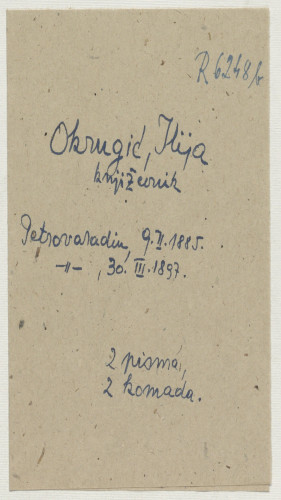 R 6248/b
Okrugić, Ilija
književnik
Petrovaradin, 9.II.1885.
-"- , 30.III.1897.
2 pisma,
2 komada.